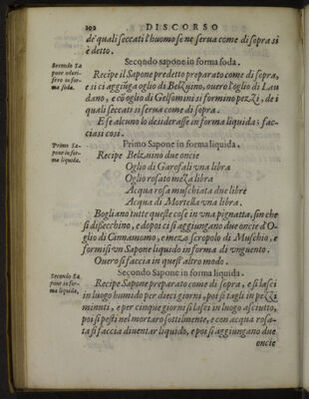 202 DISCORSO
de' quali seccati l'huomo se ne serua come di sopra si
è detto.
Secondo sapone in forma soda.
Secondo Sa
pone odori-
fero in for-
ma soda.
Recipe il Sapone predetto preparato come di sopra,
e si ci aggiuga oglio di Belzuino, ouero l'oglio di Lau
dano, e cō oglio di Gelsomini si formino pezzi, de i
quali seccati si serua come di sopra.
E se alcuno lo desiderasse in forma liquida; fac-
ciasi cosi.
Primo Sapone in forma liquida.
Primo Sa-
pone in for-
ma liquida.
Recipe Belzuino due oncie
Oglio di Garofali vna libra
Oglio rosato meza libra
Acqua rosa muschiata due libre
Acqua di Mortella vna libra.
Bogliano tutte queste cose in vna pignatta, sin che
si disecchino, e dopoi ci si aggiungano due oncie d'O-
glio di Cinnamomo, e meza scropolo di Muschio, e
formisi vn Sapone liquido in forma di vnguento.
Ouero si faccia in quest'altro modo.
Secondo Sapone in forma liquida.
Secondo Sa
pone in for-
ma liquida.
Recipe Sapone preparato come di sopra, e si lasci
in luogo humido per dieci giorni, poi si tagli in pezzi
minuti, e per cinque giorni si lasci in luogo asciutto,
poi si pesti nel mortaro sottilmente, e con acqua rosa-
ta si faccia diuentar liquido, e poi si aggiungano due
oncie